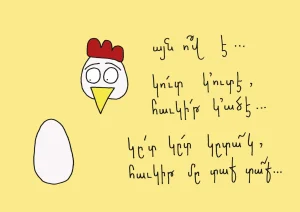 այն ո՞վ է...
կուտ կ՚ուտէ,
հաւկի՛թ կ՚ածէ...
կը՛տ կը՛տ կըտա՜կ,
հաւկիթ մը տաք տա՜ք...